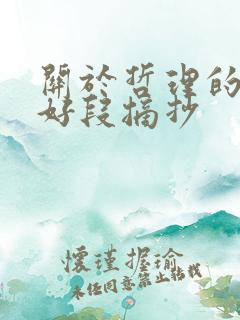 關於哲理的
好段摘抄
懷瑾握瑜
未任同意禁止轉載